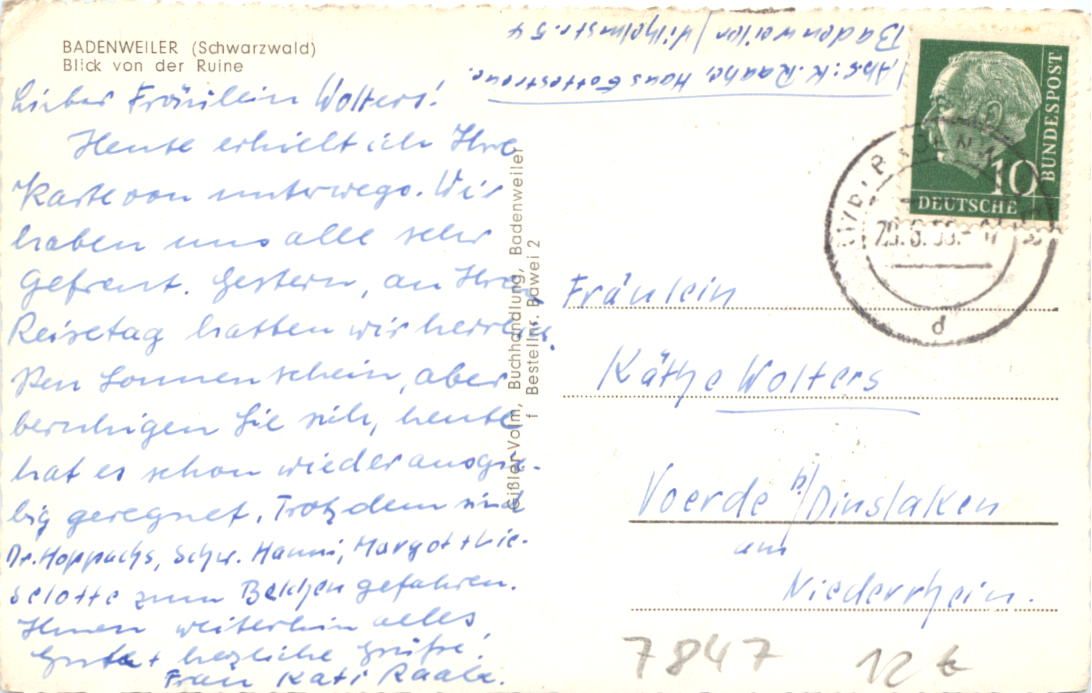 BADENWEILER (Schwarzwald)
Blick von der Ruine
Abs.: K. Raabe, Haus Gottestreue.
Badenweiler / Wilhelmstr. 54
BUNDESPOST
10
DEUTSCHE
d
Lieber Fräulein Wolters!
Heute erhielt ich Ihre
Karte von unterwegs. Wir
haben uns alle sehr
gefreut. Gestern, an Ihrem
Reisetag hatten wir herrli-
chen Sonnenschein, aber
beruhigen Sie sich, heute
hat es schon wieder ausgie-
big geregnet. Trotzdem sind
Dr. Hoppachs, Schw. Hanni, Margot + Lie-
selotte zum Belchen gefahren.
Ihnen weiterhin alles
Gute + herzliche Grüße!
Frau Kati Raabe.
Gißler-Volm, Buchhandlung, Badenweiler
f Bestellnr. Bawei 2
Fräulein
Käthe Wolters
Voerde b/Dinslaken
am
Niederrhein.
7847
12